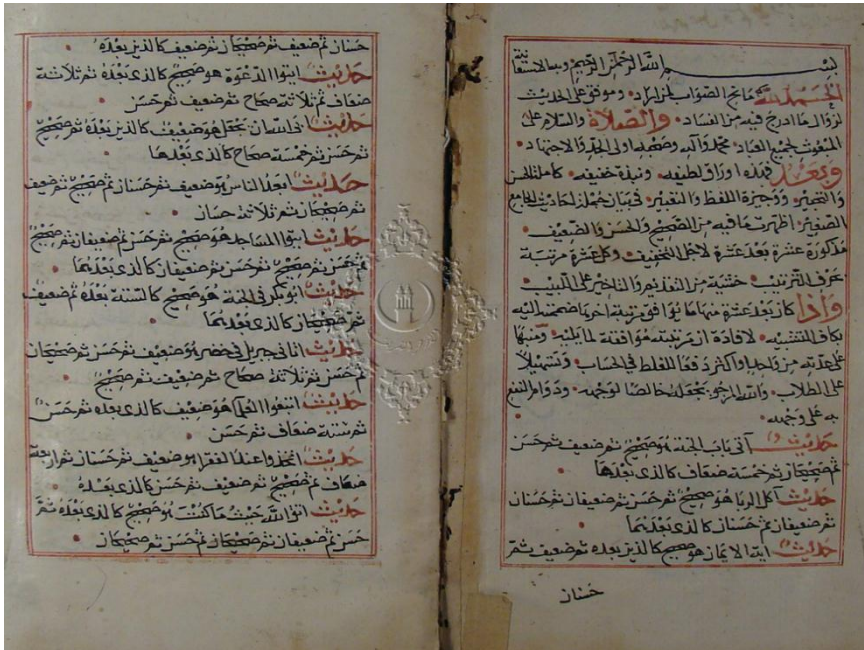 بسم الله الرحمن الرحيم وبه الاستعانة
الحمد لله مانح الصواب لمن اراد، وموفق على الحديث
لزوال ما ادرج فيه من الفساد، والصلاة والسلام على
المبعوث لجميع العباد، محمد وآله وصحبه اولى الجد والاجتهاد،
وبعد فهذه اوراق لطيفه، ونبذة خفيفه، كاملة الحسن
والتحبير، ووجيزة اللفظ والتعبير، في بيان جمل من احاديث الجامع
الصغير، اظهرت ما فيه من الصحيح والحسن والضعيف،
مذكورة عشرة بعد عشرة لاجل التخفيف، وكل عشرة مرتبة
بحرف الترتيب، خشية من التقديم والتاخير على اللبيب،
واذا كان بعد عشرة منها ما يوافق مرتبة اخرها ضممته اليه
بكاف التشبيه، لافادة ان مرتبته موافقة لما يليه، ومنبها
على عدته من واحد واكثر دفعا للغلط في الحساب، وتسهيلا
على الطلاب، والله المرجو بجعله خالصا لوجهه، ودوام النفع
به على وجهه،
حديث آتى باب الجنة هو صحيح ثم ضعيف ثم حسن
ثم صحيحان ثم خمسة ضعاف كالذي بعدها
حديث آكل الربا هو صحيح ثم حسن ثم ضعيفان ثم حسنان
ثم ضعيفان ثم حسنان كالذي بعدهما
حديث ايه الايمان هو صحيح كالذين بعده ثم ضعيف ثم
حسنان
حسنان ثم ضعيف ثم صحيحان ثم ضعيف كالذين بعده
حديث ايتوا الدعوة هو صحيح كالذي بعده ثم ثلاثة
ضعاف ثم ثلاثة صحاح ثم ضعيف ثم حسن
حديث ابى الله ان يجعل هو ضعيف كالذين بعده ثم صحيح
ثم حسن ثم خمسة صحاح كالذي بعدها
حديث ابعد الناس هو ضعيف ثم حسنان ثم صحيح ثم ضعيف
ثم صحيحان ثم ثلاثة حسان
حديث ابنوا المساجد هو صحيح ثم حسن ثم ضعيفان ثم صحيح
ثم حسن ثم صحيح ثم حسن ثم ضعيفان كالذي بعدهما
حديث ابو بكر في الجنة هو صحيح كالستة بعده ثم ضعيف
ثم صحيحان كالذي بعدهما
حديث اتاني جبريل في خضر هو ضعيف ثم حسن ثم صحيحان
ثم حسن ثم ثلاثة صحاح ثم ضعيف ثم صحيح
حديث اتبعوا العلما هو ضعيف كالذين بعده ثم حسن
ثم ستة ضعاف ثم حسن
حديث اتخذوا عند الفقرا هو ضعيف ثم حسنان ثم اربعة
ضعاف ثم صحيح ثم ضعيف ثم حسن كالذي بعده
حديث اتق الله حيث ما كنت هو صحيح كالذي بعده ثم
حسن ثم ضعيفان ثم صحيحان ثم حسن ثم صحيحان